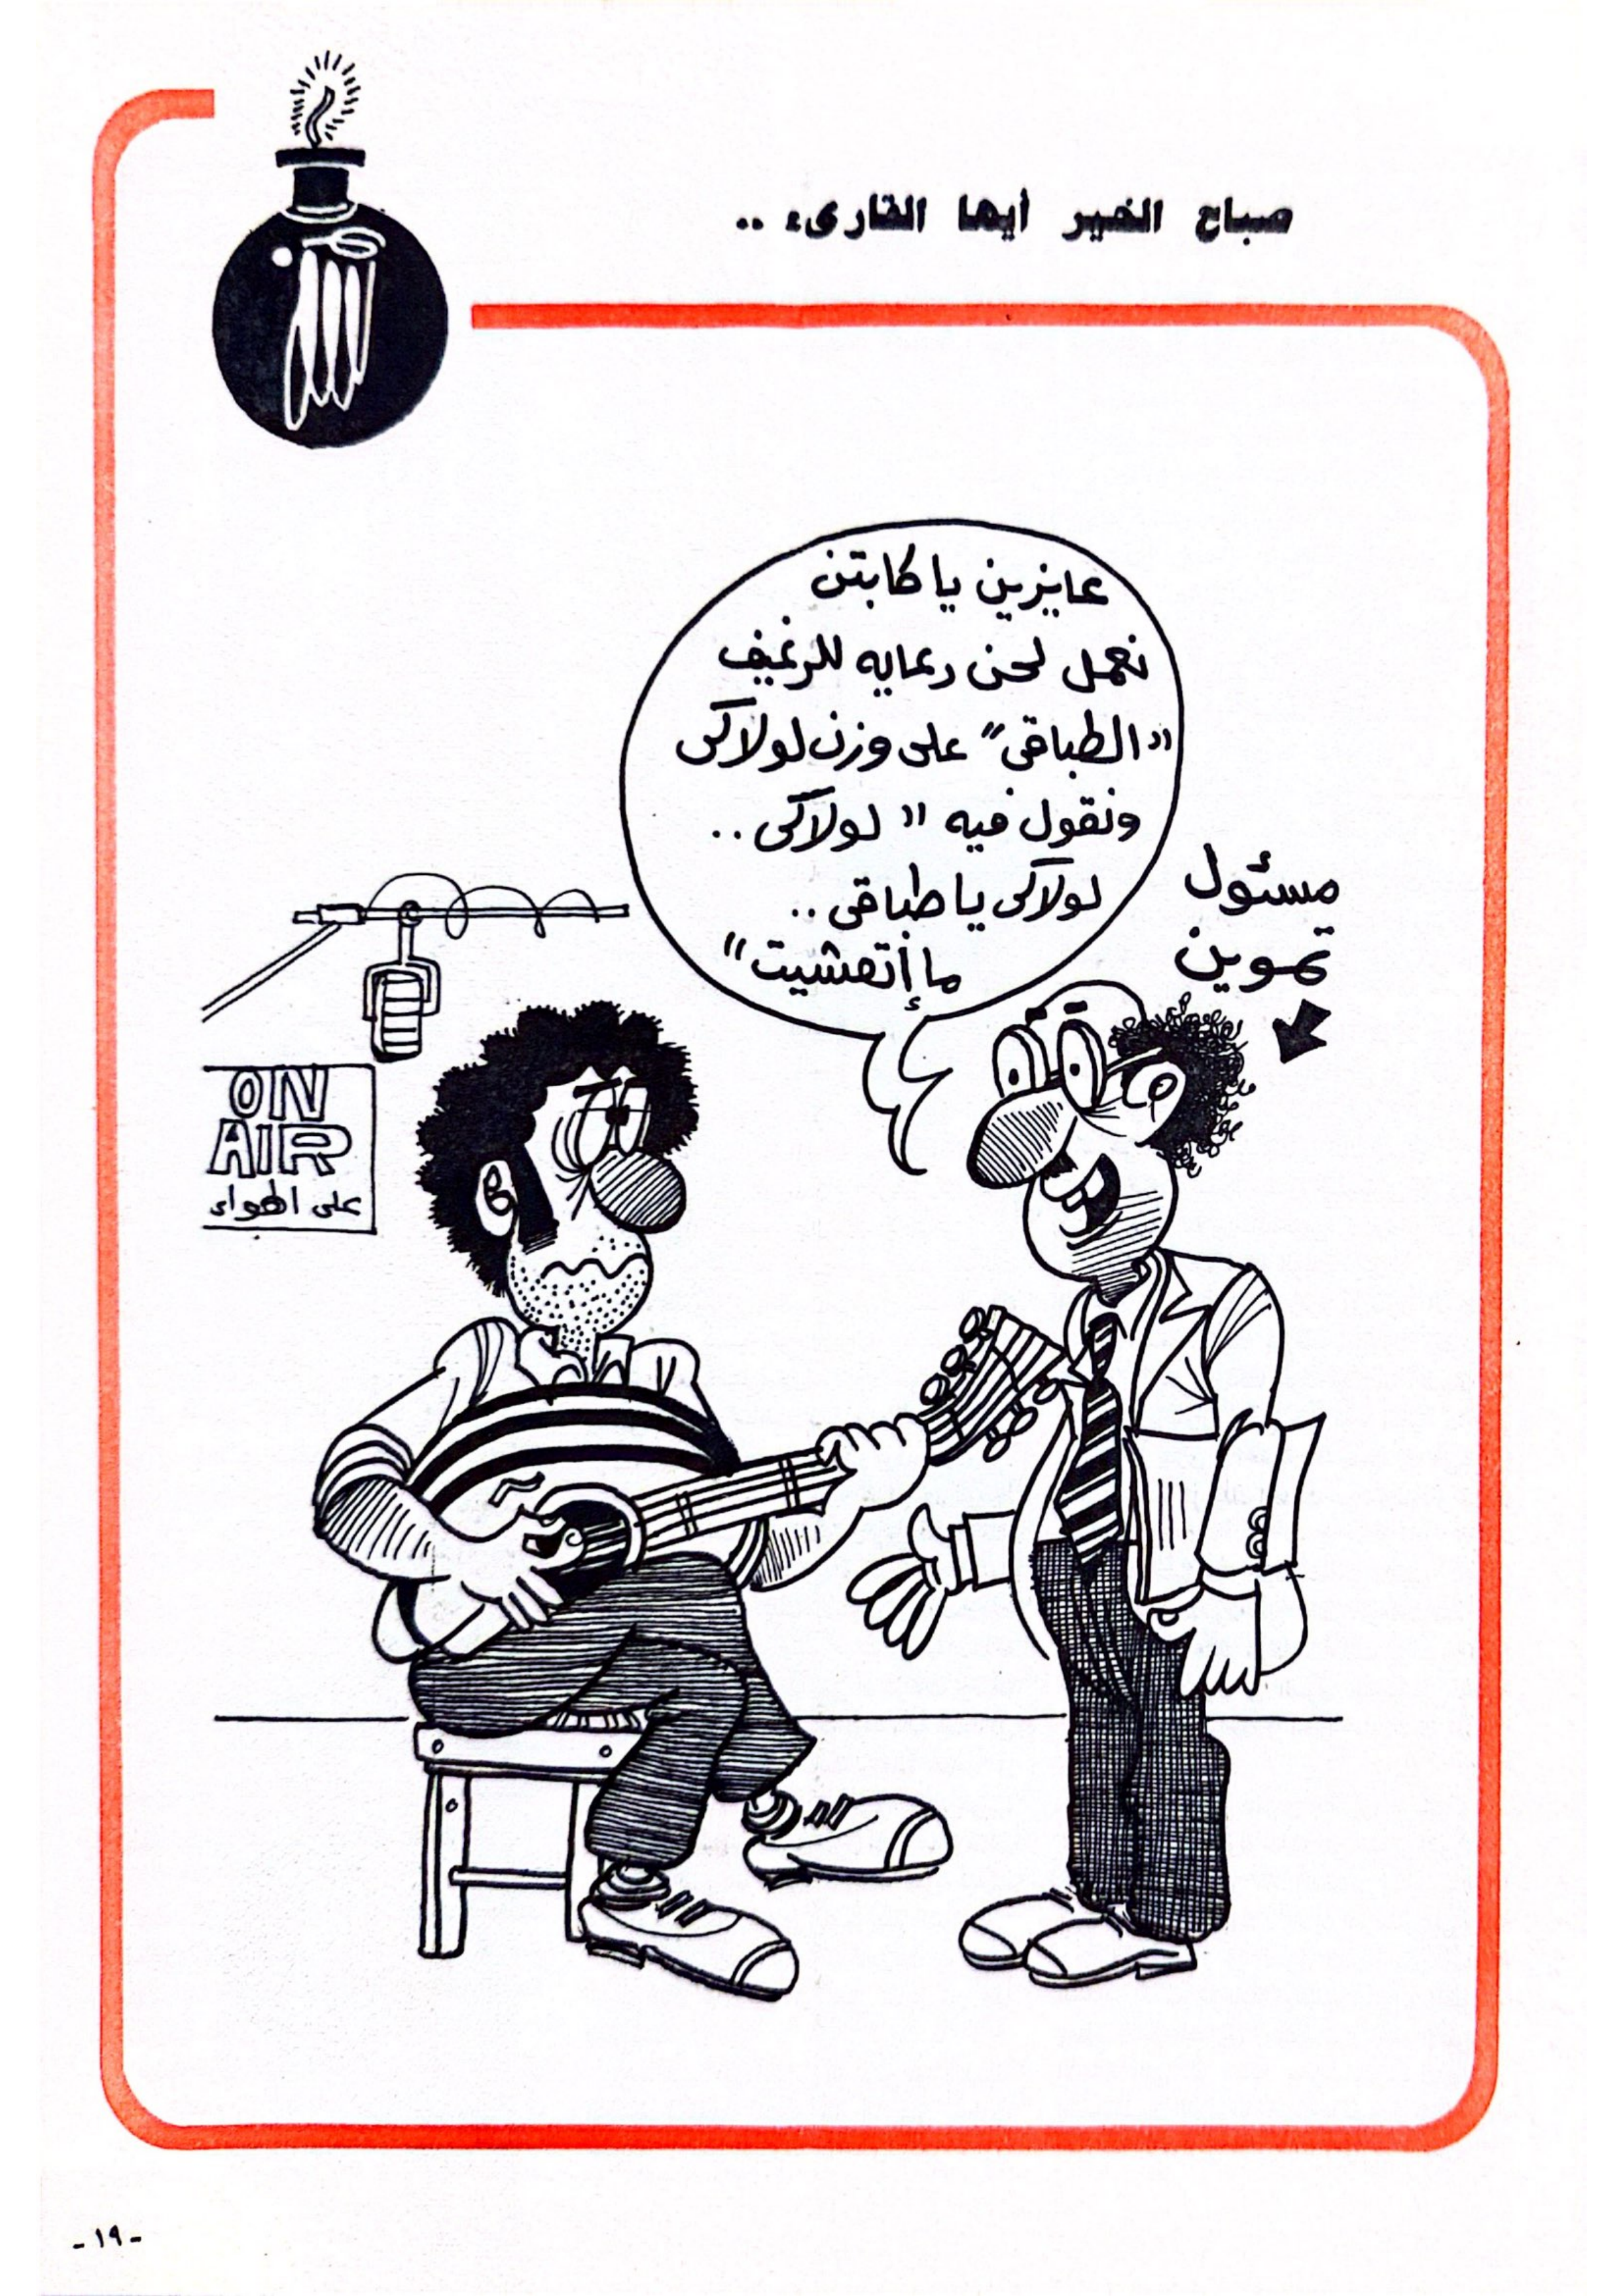 صباح الخير أيها القارىء ..
عايزين يا كابتن
نعمل لحن دعايه للرغيف
"الطباقى" على وزن لولاكى
ونقول فيه "لولاكى ..
لولاكى يا طباقى ..
ما إتعشيت"
مسئول
تموين
ON
AIR
على الهواء
- ١٩ -